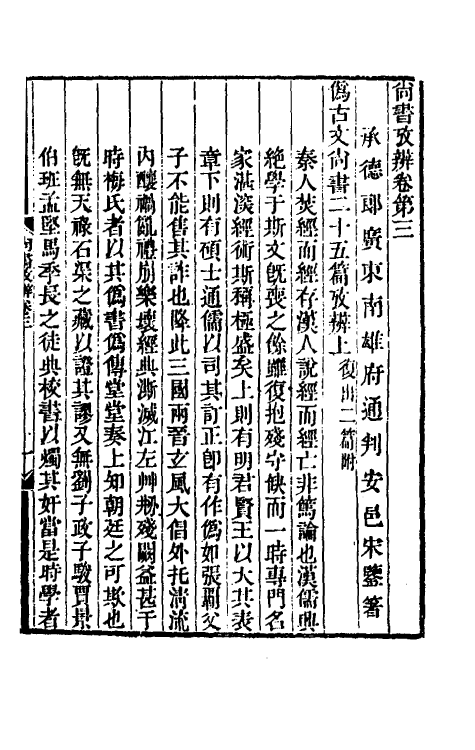 尚書攷辨卷第三
承德郎廣東南雄府通判安邑宋鑒著
僞古文尚書二十五篇攷辨上復出二篇附
秦人焚經而經存漢人說經而經亡非篤論也漢儒興
絕學于斯文旣喪之餘雖復抱殘守缺而一時專門名
家湛深經術斯稱極盛矣上則有明君賢王以大其表
章下則有碩士通儒以司其訂正卽有作僞如張霸父
子不能售其詐也降此三國兩晉玄風大倡外托淸流
內釀禍亂禮崩樂壞經典澌滅江左艸刱殘闕益甚于
時梅氏者以其僞書僞傳堂堂奏上知朝廷之可欺也
旣無天祿石渠之藏以證其謬又無劉子政子駿賈景
伯班孟堅馬季長之徒典校書以燭其奸當是時學者
尚書攷辨卷三
一